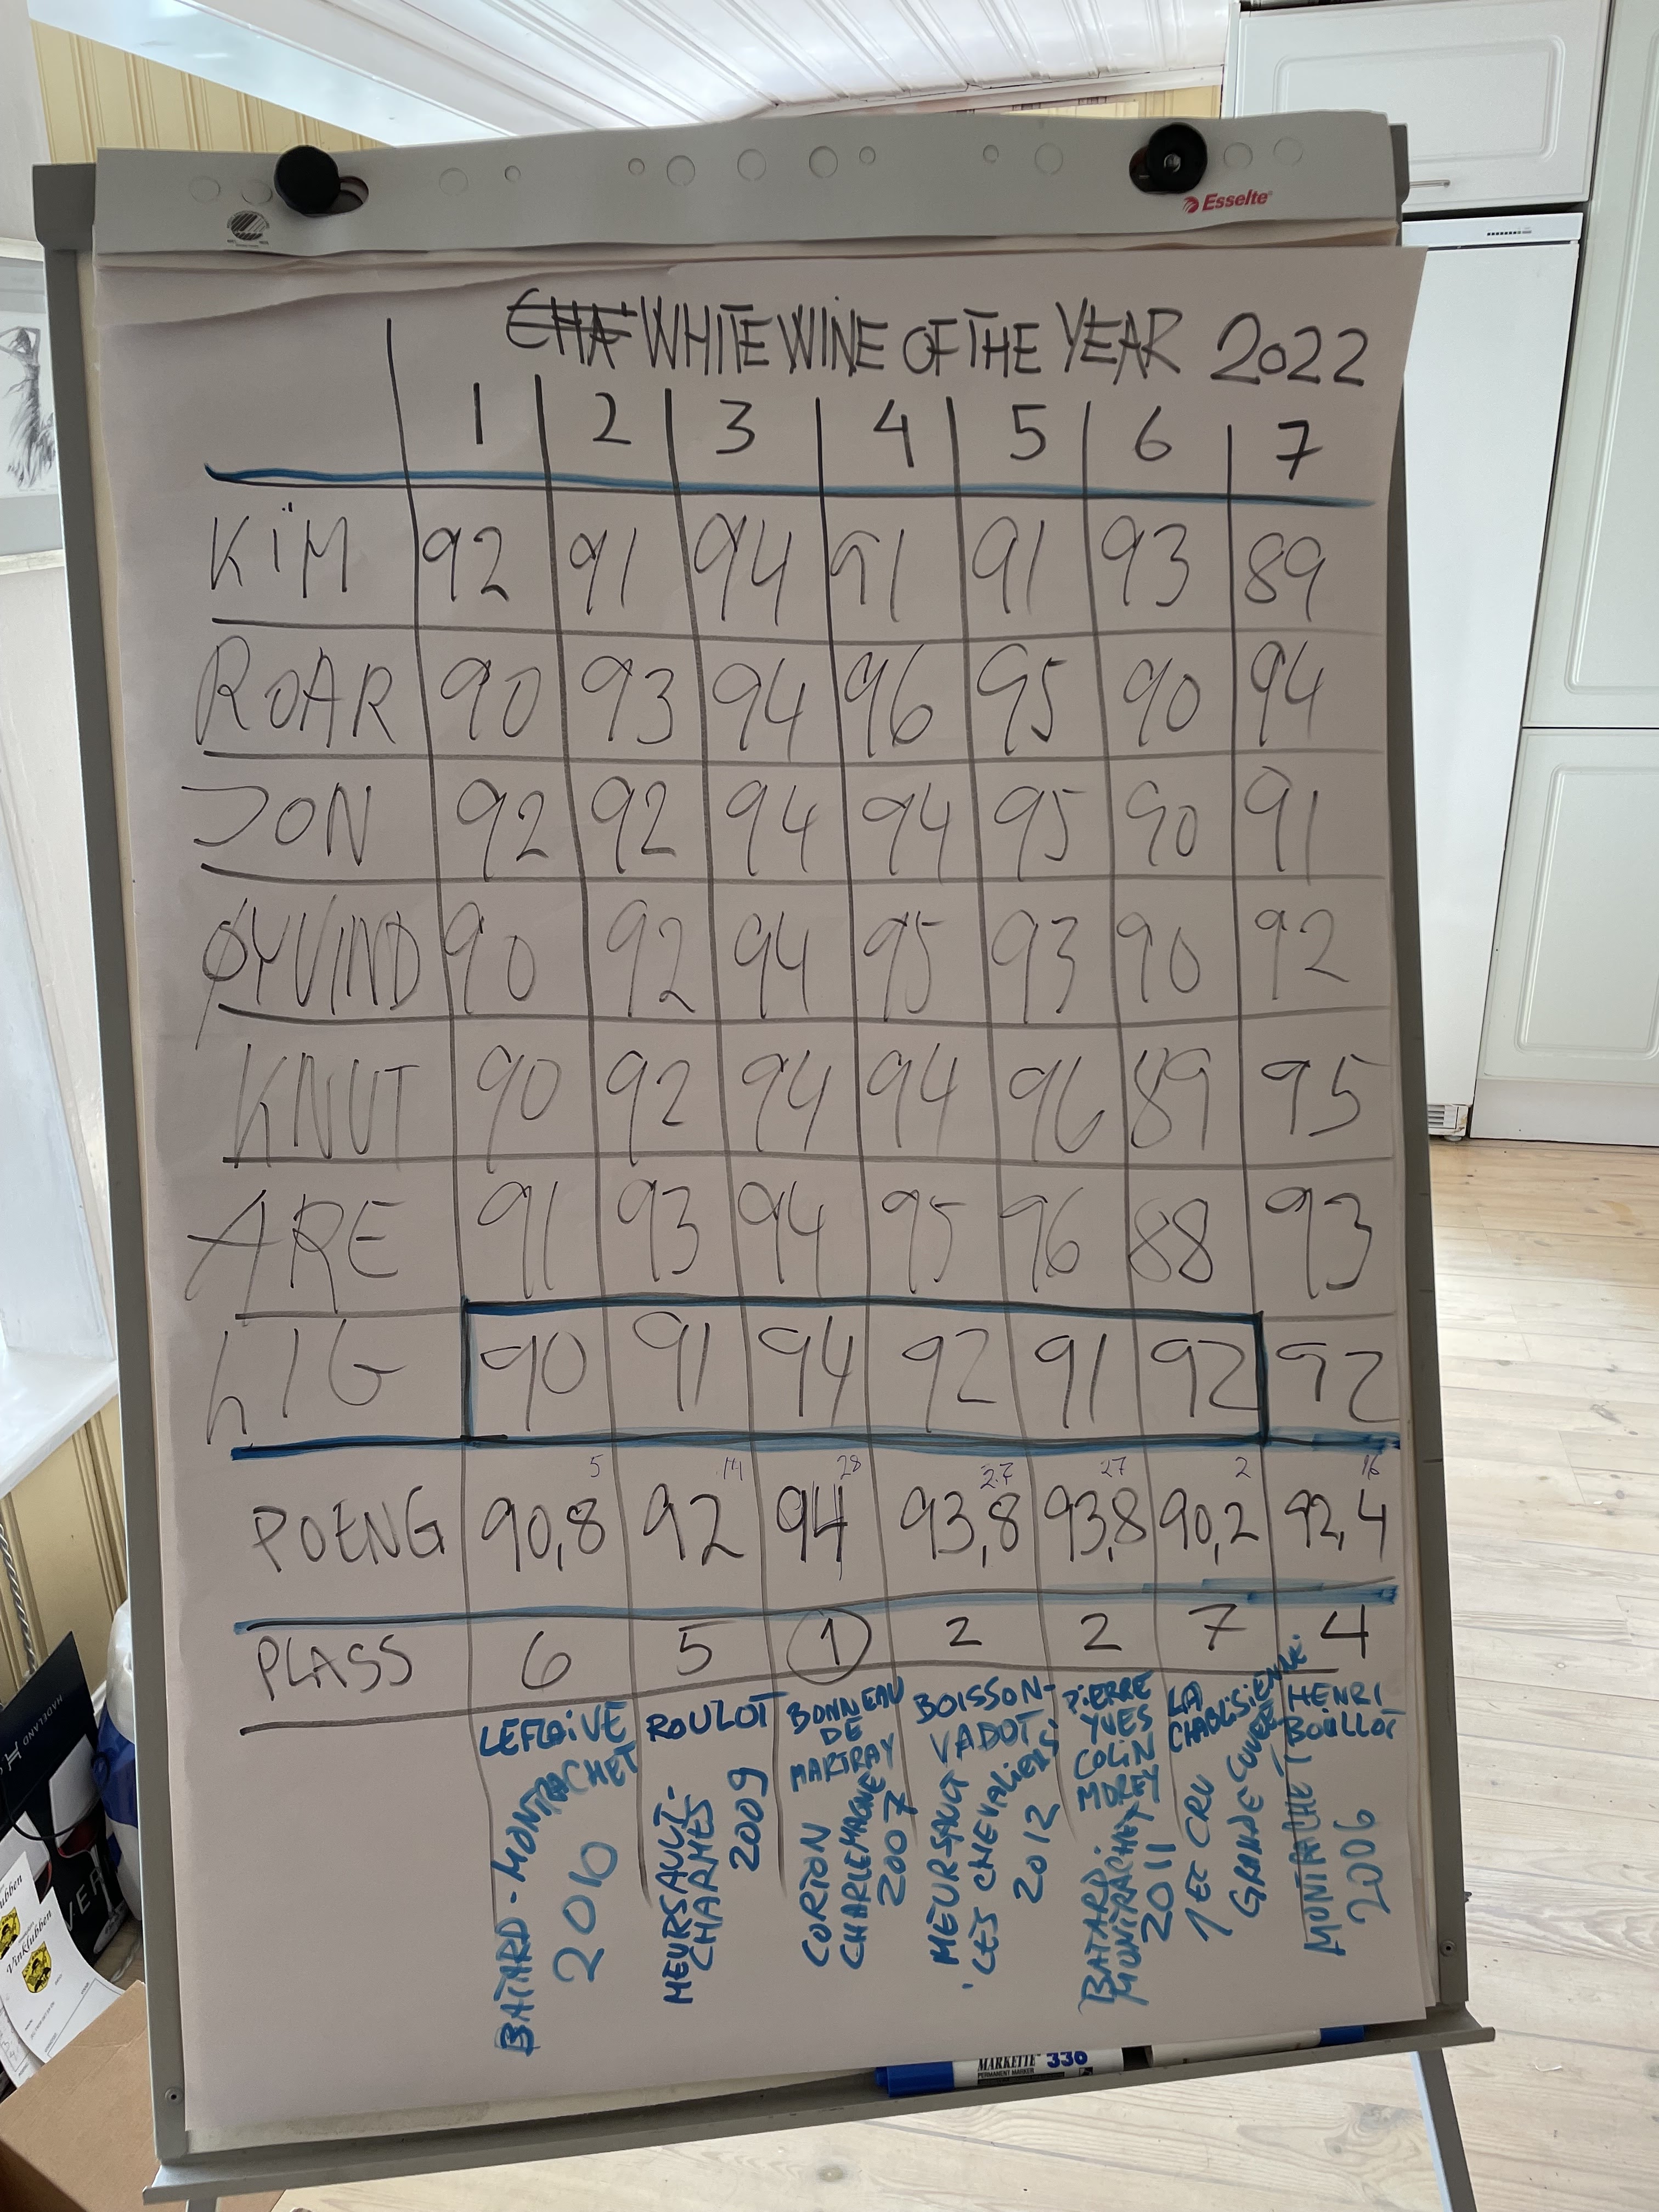 Esselte
CHA WHITE WINE OF THE YEAR 2022
1 2 3 4 5 6 7
KIM 92 91 94 91 91 93 89
ROAR 90 93 94 96 95 90 94
JON 92 92 94 94 95 90 91
ØYVIND 90 92 94 95 93 90 92
KNUT 90 92 94 94 96 89 95
ARE 91 93 94 95 96 88 93
LIG 90 91 94 92 91 92 92
5 14 28 27 27 2 16
POENG 90,8 92 94 93,8 93,8 90,2 92,4
PLASS 6 5 1 2 2 7 4
LEFLAIVE
BATARD-MONTRACHET
2010
ROULOT
MEURSAULT-
CHARMES
2009
BONNEAU
DE
MARTRAY
CORTON
CHARLEMAGNE
2007
BOISSON-
VADOT
MEURSAULT
LES CHEVALIERS
2012
PIERRE
YVES
COLIN
MOREY
BATARD-
MONTRACHET
2011
LA
CHABLISIENNE
1ER CRU
GRANDE CUVEE
HENRI
BOILLOT
MONTRACHET
2006
MARKETTE 336
PERMANENT MARKER
HADELAND
Vinklubben